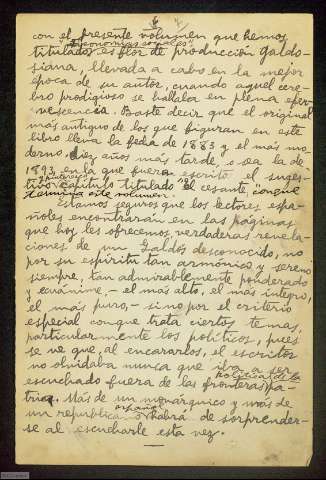 con el presente volumen que hemos
"Fisonomías sociales"
titulado es flor de producción galdo-
siana, llevada a cabo en la mejor
época de su autor, cuando aquel cere-
bro prodigioso se hallaba en plena eper-
vescencia. Baste decir que el original
más antiguo de los que figuran en este
libro lleva la fecha de 1883 y el más mo-
derno, diez años más tarde, o sea la de
1893, en la que fuera escrito el suges-
tivo capítulo titulado "El cesante, conque
termina este volumen.
Estamos seguros que los lectores espa-
ñoles encontrarán en las páginas
que hoy les ofrecemos, verdaderas revela-
ciones de un Galdós desconocido, no
por su espíritu tan armónico y sereno
siempre, tan admirablemente ponderado
y ecuánime, — el más alto, el más íntegro,
el más puro, — sino por el criterio
especial conque trata ciertos temas,
particularmente los políticos, pues
se ve que, al encararlos, el escritor
no olvidaba nunca que iba a ser
escuchado fuera de las fronteras pa-
trias. Más de un monárquico y más de
español
un republicano habrá de sorprender-
se al escucharle esta vez.